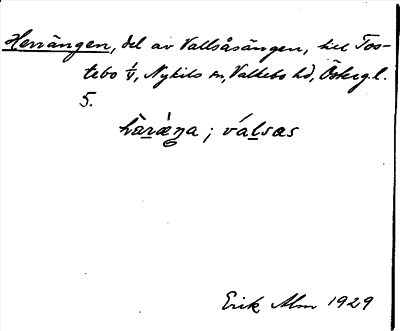 Herrängen, del av Vallsåsängen, till Tos-
tebo 1/4, Nykils sn, Valkebo hd, Östergl.
5.
hàræ̀ŋa ; válsas
Erik Alm 1929